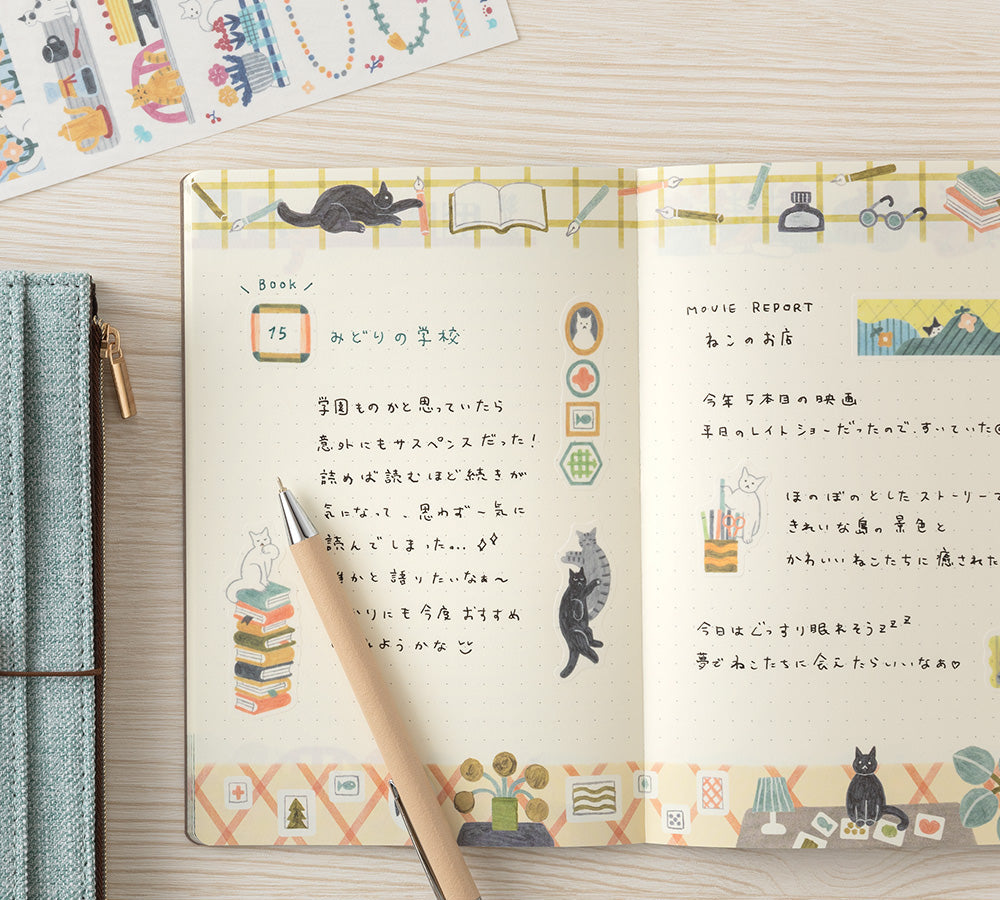 Book
15
みどりの学校
学園ものかと思っていたら
意外にもサスペンスだった!
読めば読むほど続きが
気になって、思わず一気に
読んでしまった...
かと語りたいなぁ〜
りにも今度おすすめ
ようかな
MOVIE REPORT
ねこのお店
今年5本目の映画
平日のレイトショーだったので、すいていた
ほのぼのとしたストーリーで
きれいな島の景色と
かわいいねこたちに癒された
今日はぐっすり眠れそうzzz
夢でねこたちに会えたらいいなぁ♡